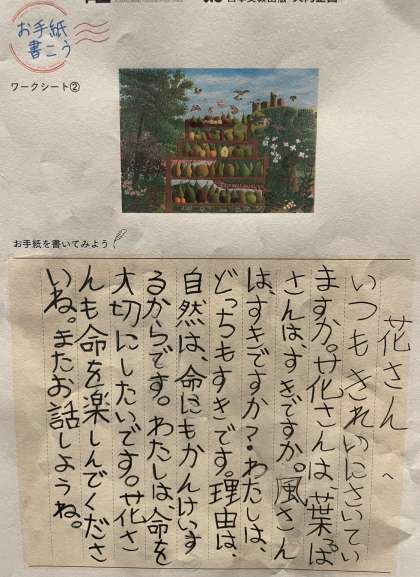 お手紙
書こう
ワークシート②
お手紙を書いてみよう
花さんへ
いつもきれいにさいてい
ますか。花さんは、葉っぱ
さんは、すきですか。風さん
は、すきですか?わたしは、
どっちもすきです。理由は、
自然は、命にもかんけいす
るからです。わたしは、命を
大切にしたいです。花さ
んも命を楽しんでくださ
いね。またお話しようね。